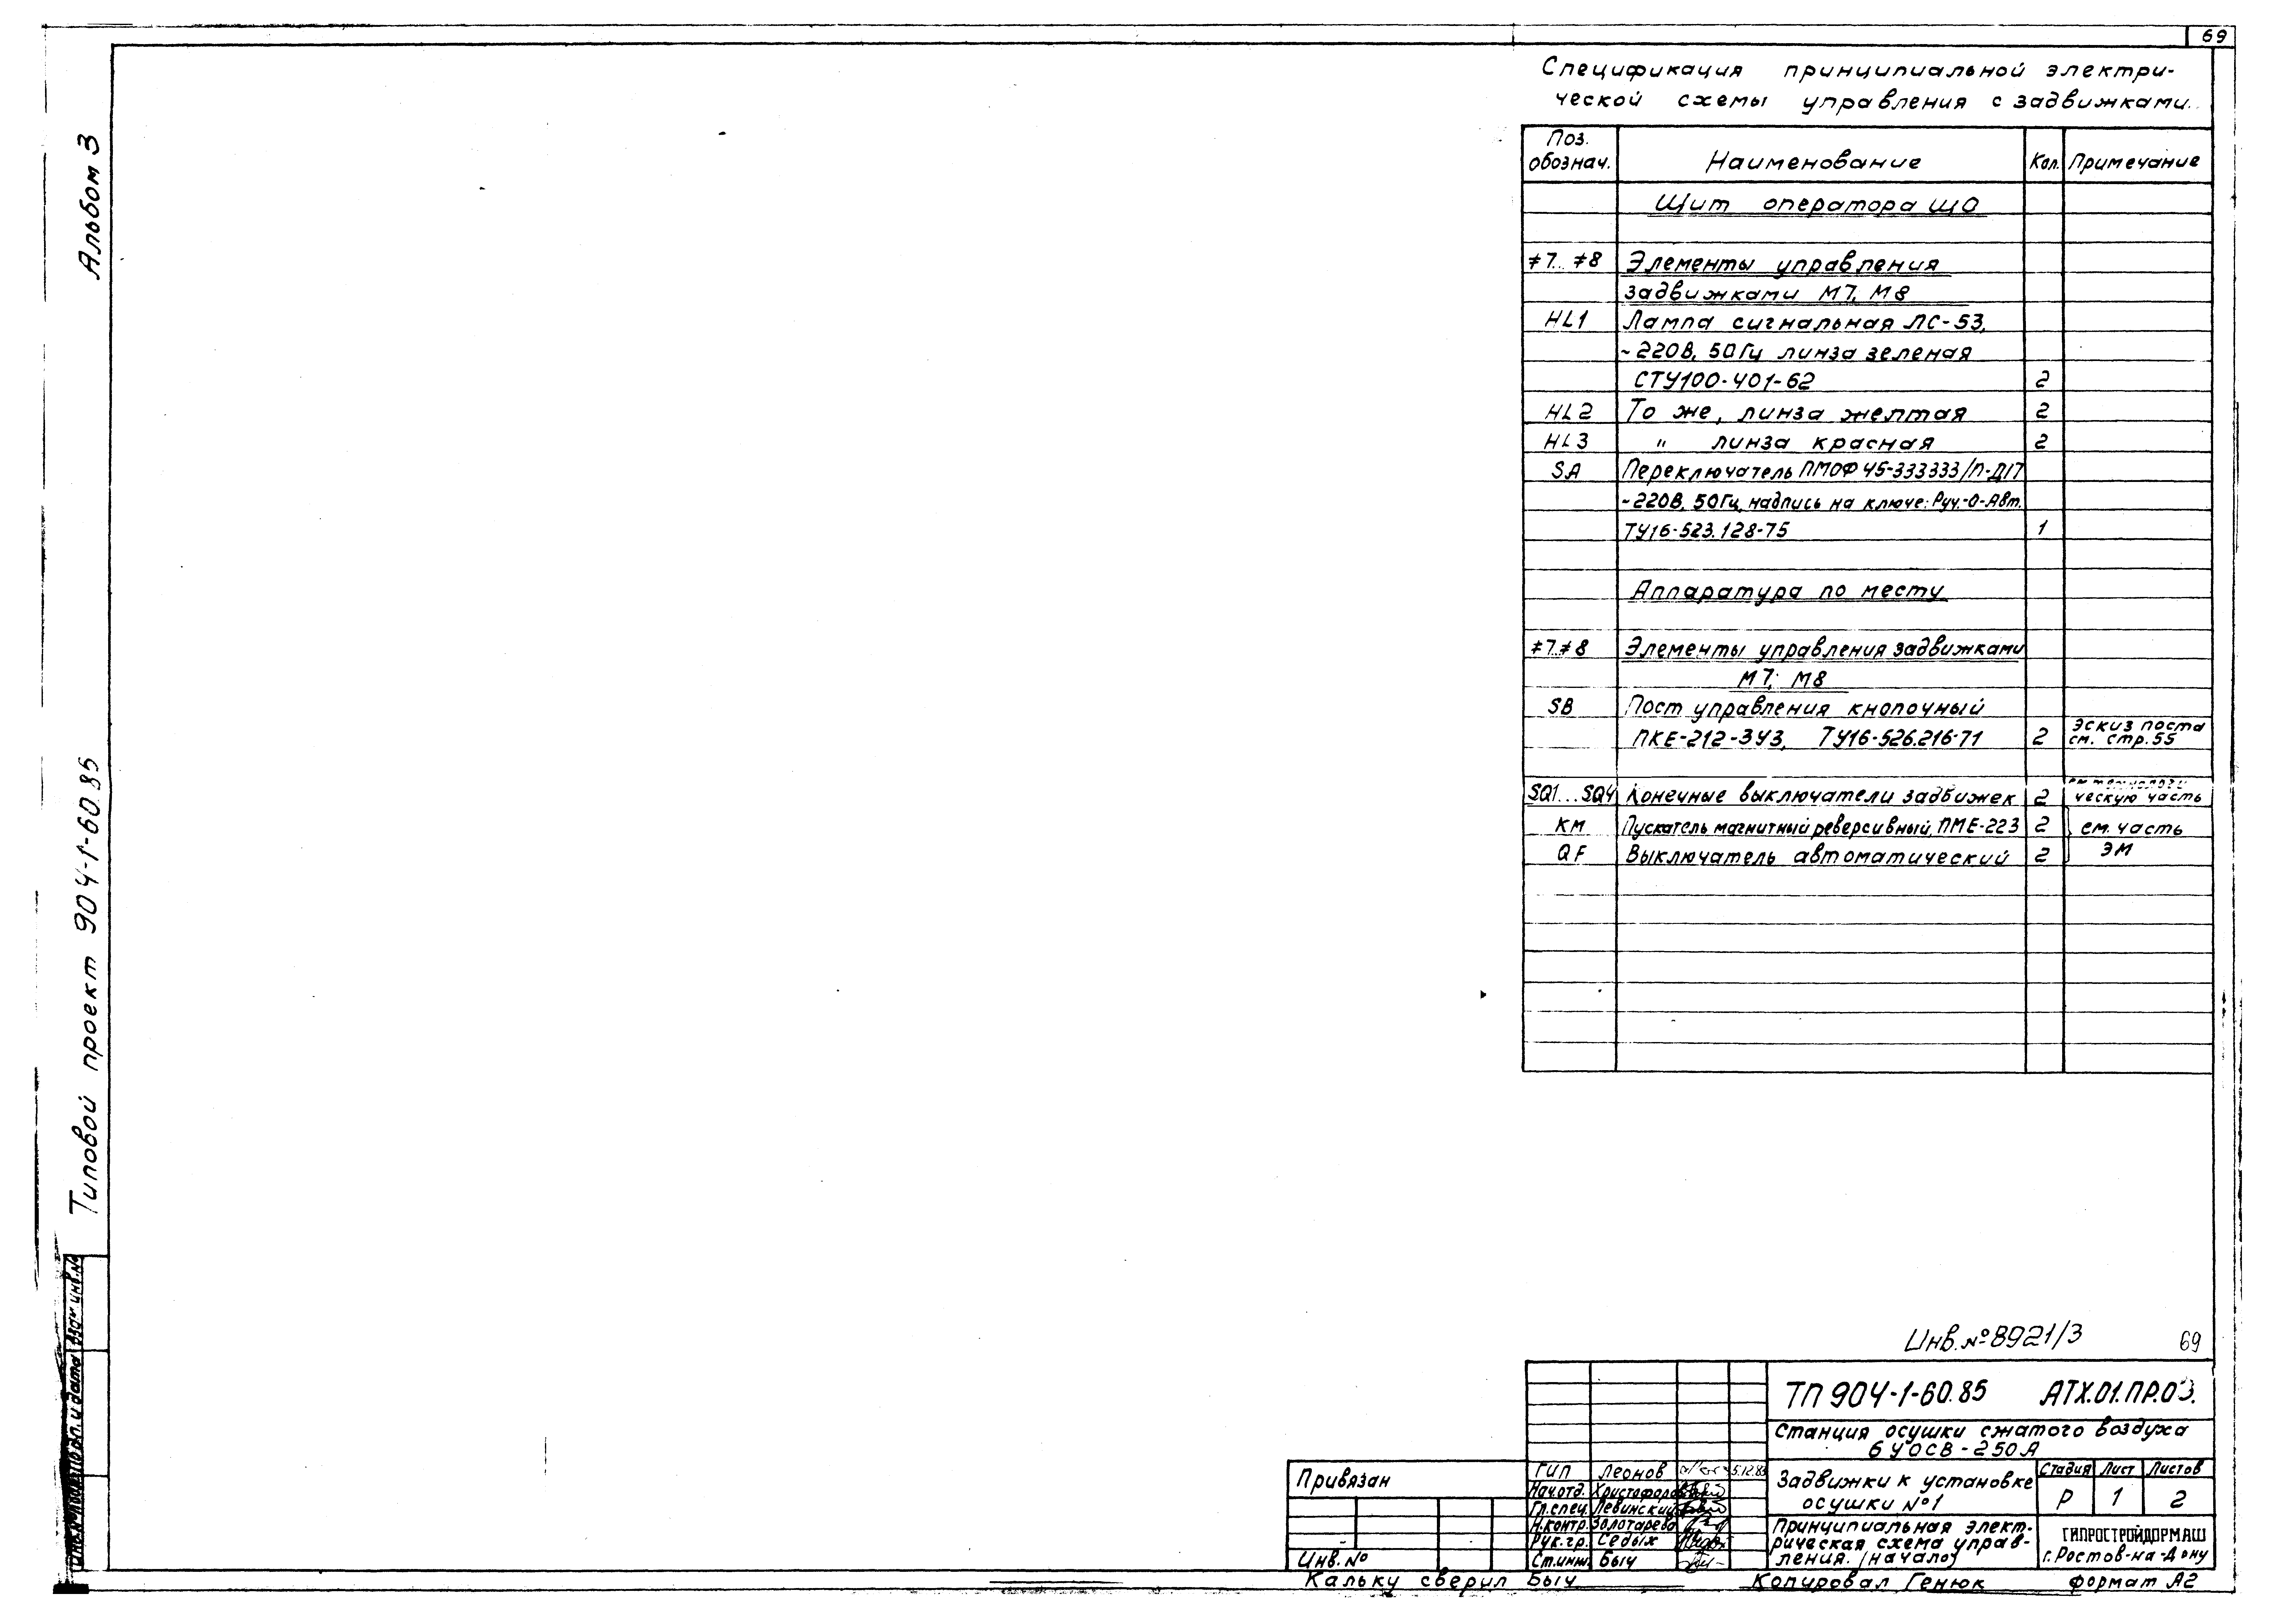 69
Спецификация принципиальной электри-
ческой схемы управления с задвижками.
Альбом 3
Типовой проект 904-1-60.85
Поз. обознач. Наименование Кол. Примечание
Щит оператора ЩО
≠7...≠8 Элементы управления
задвижками М7, М8
HL1 Лампа сигнальная ЛС-53,
~220В, 50Гц линза зеленая
СТУ100-401-62 2
HL2 То же, линза желтая 2
HL3 " линза красная 2
SA Переключатель ПМОФ45-333333/П-Д17
~220В, 50Гц, надпись на ключе: Руч.-О-Авт.
ТУ16-523.128-75 1
Аппаратура по месту
≠7..≠8 Элементы управления задвижками
М7, М8
SB Пост управления кнопочный
ПКЕ-212-3У3, ТУ16-526.216-71 2 Эскиз поста см. стр.55
SQ1...SQ4 Конечные выключатели задвижек 2 ческую часть
КМ Пускатель магнитный реверсивный, ПМЕ-223 2 см. часть
QF Выключатель автоматический 2 ЭМ
Инв.№8921/3 69
ТП 904-1-60.85 АТХ.01.ПР.03.
Станция осушки сжатого воздуха
6УОСВ-250А
Привязан
Инв.№
ГИП Леонов 5.12.83
Нач.отд. Христофоров
Гл.спец. Левинский
Н.контр. Золотарева
Рук.гр. Седых
Ст.инж. Быч
Задвижки к установке
осушки №1
Стадия Лист Листов
Р 1 2
Принципиальная элект-
рическая схема управ-
ления. (начало)
ГИПРОСТРОЙДОРМАШ
г.Ростов-на-Дону
Взам инв.№
Подп. и дата
Кальку сверил Быч Копировал Генюк формат А2